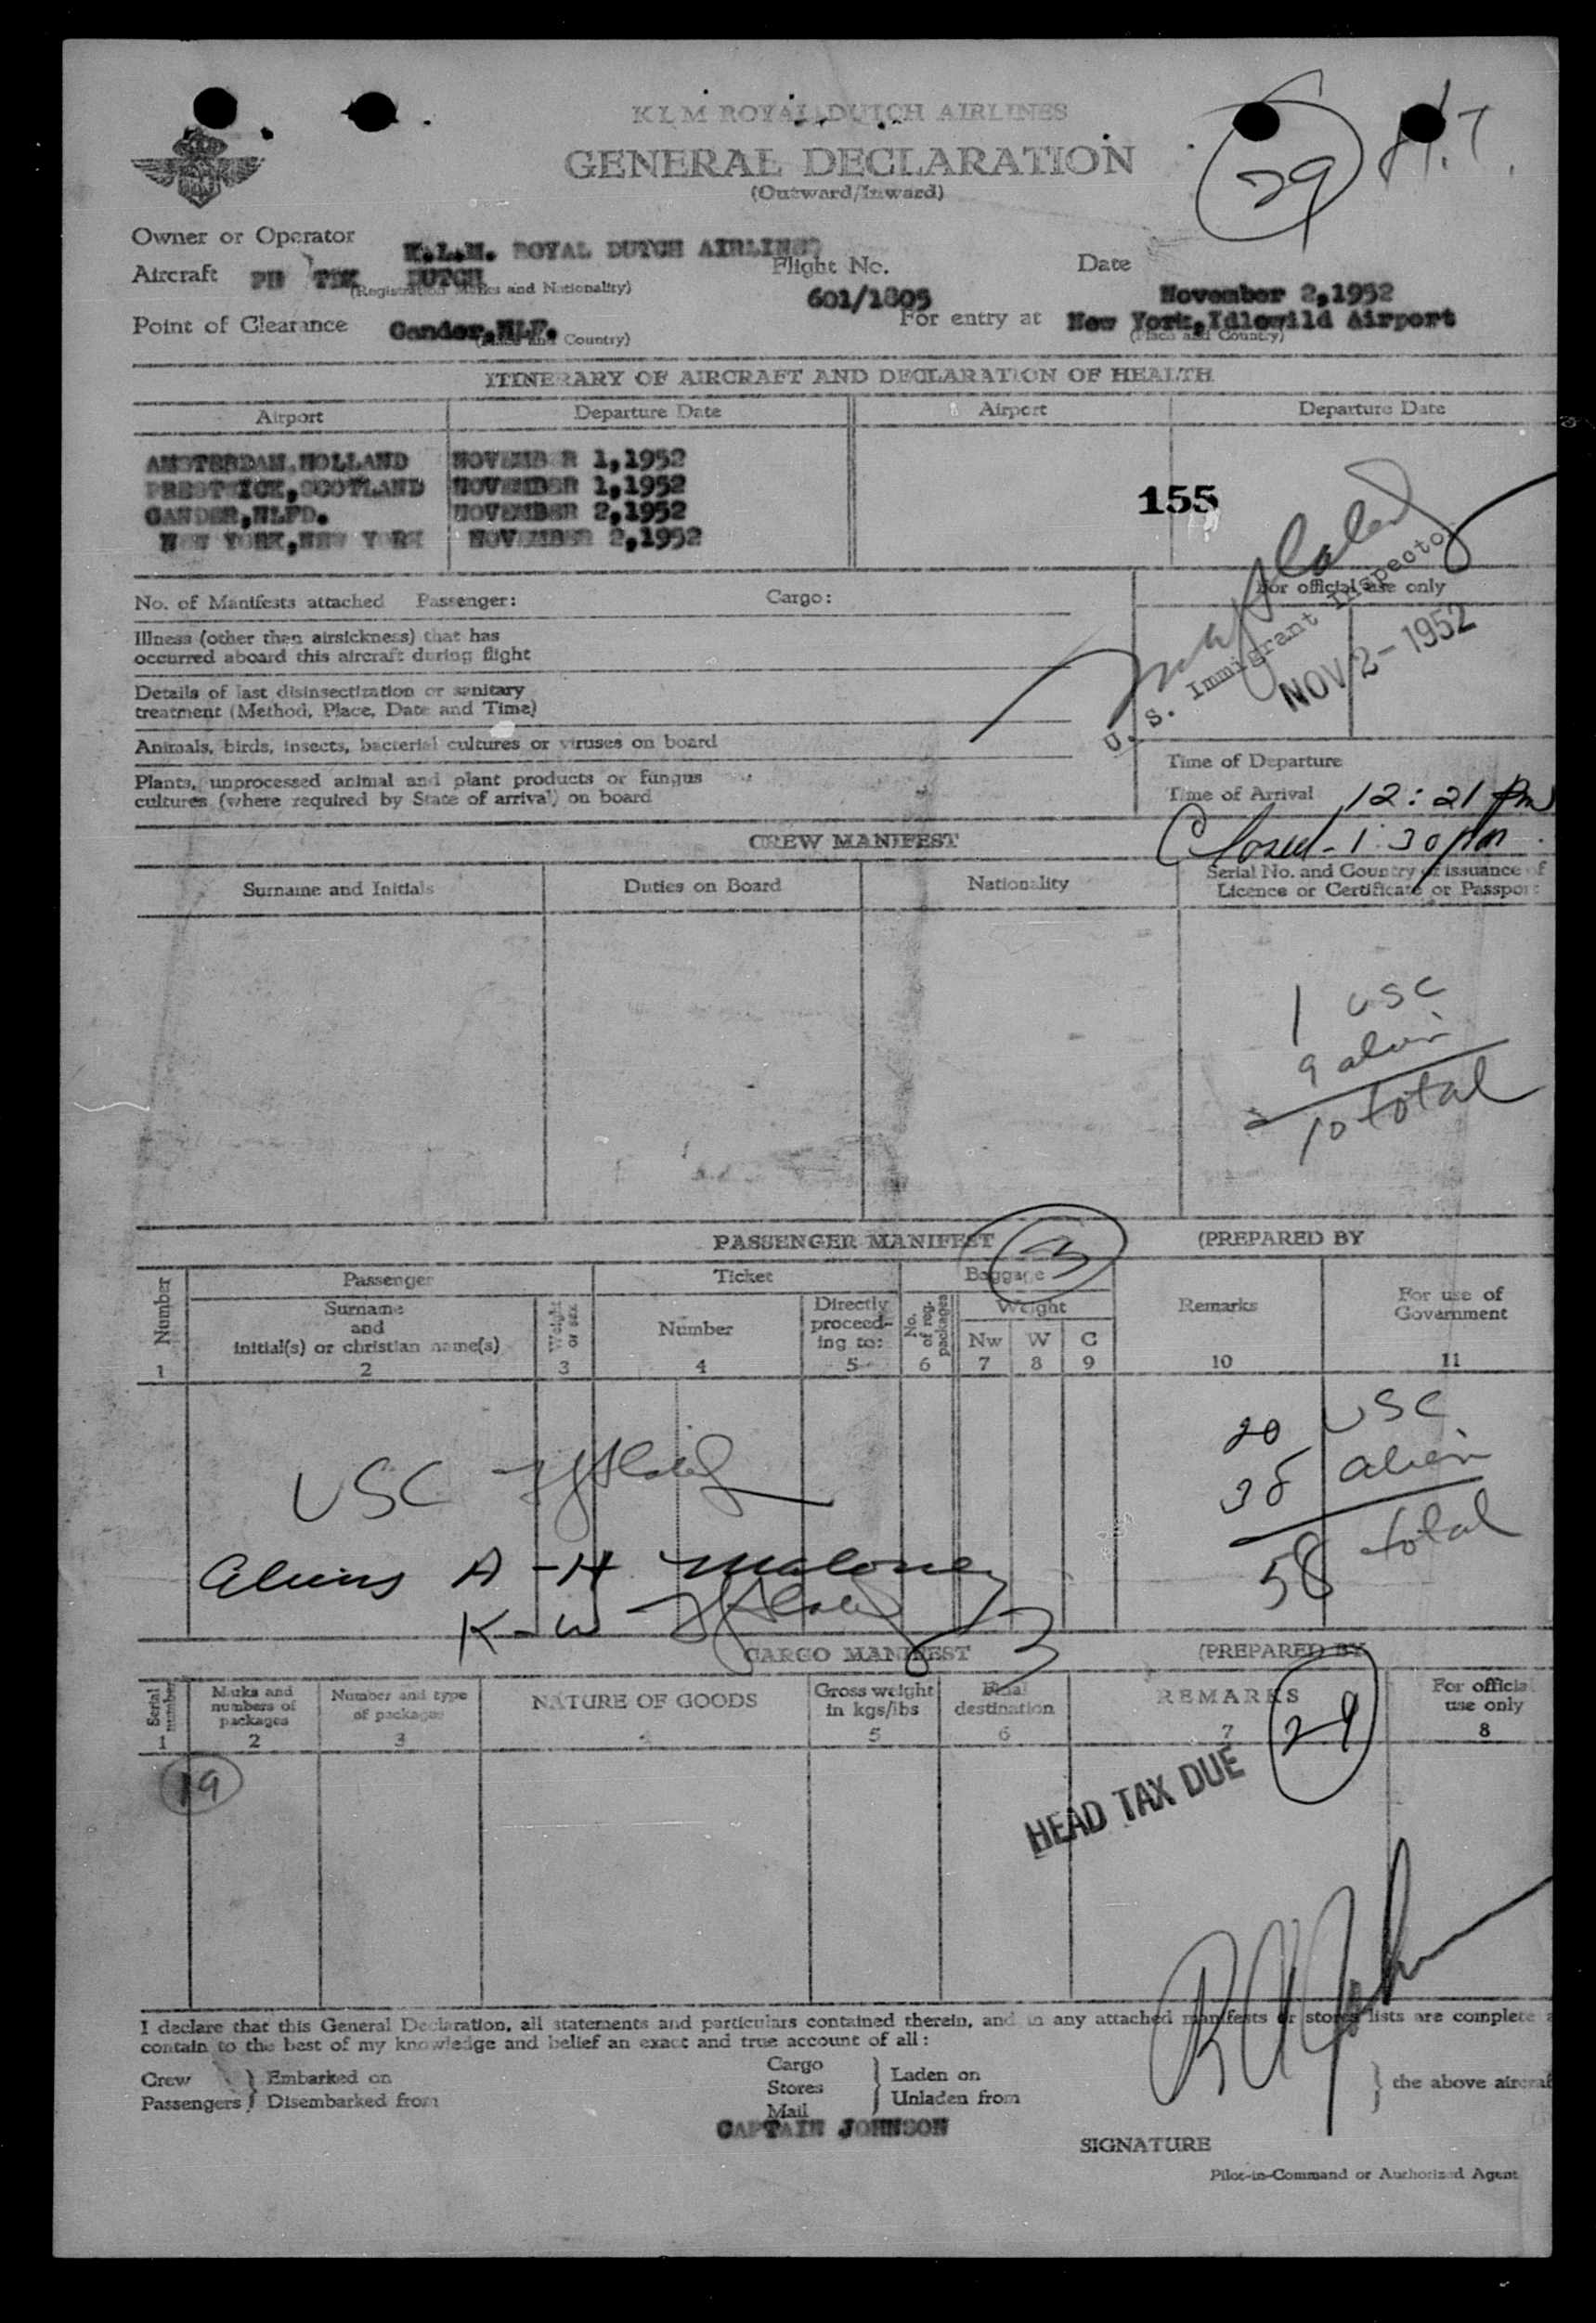 KLM ROYAL DUTCH AIRLINES
GENERAL DECLARATION
(Outward/Inward)
29 H.T.
Owner or Operator K.L.M. ROYAL DUTCH AIRLINES
Aircraft PH DUTCH
(Registration Marks and Nationality)
Flight No. 601/1805
Date November 2,1952
Point of Clearance Gander,NLF.
(Place and Country)
For entry at New York,Idlewild Airport
(Place and Country)
ITINERARY OF AIRCRAFT AND DECLARATION OF HEALTH
Airport Departure Date Airport Departure Date
AMSTERDAM,HOLLAND NOVEMBER 1,1952
PRESTWICK,SCOTLAND NOVEMBER 1,1952
GANDER,NLFD. NOVEMBER 2,1952
NEW YORK,NEW YORK NOVEMBER 2,1952
155
No. of Manifests attached Passenger: Cargo:
For official use only
Illness (other then airsickness) that has
occurred aboard this aircraft during flight
U. S. Immigrant Inspector
NOV 2-1952
Details of last disinsectization or sanitary
treatment (Method, Place, Date and Time)
Animals, birds, insects, bacterial cultures or viruses on board
Plants, unprocessed animal and plant products or fungus
cultures (where required by State of arrival) on board
Time of Departure
Time of Arrival 12:21 pm
Closed - 1:30 pm
CREW MANIFEST
Surname and Initials Duties on Board Nationality
Serial No. and Country of issuance of
Licence or Certificate or Passport
1 USC
9 alien
10 total
PASSENGER MANIFEST (PREPARED BY
3
Number
Passenger Ticket Baggage
Surname
and
initial(s) or christian name(s)
Weight
or sex
Number
Directly
proceed-
ing to:
No.
of reg.
packages
Weight
Nw W C
Remarks
For use of
Government
1 2 3 4 5 6 7 8 9 10 11
20 USC
38 alien
58 total
USC
Aliens A - H Maloney
K - W
3
CARGO MANIFEST (PREPARED BY
Serial
number
Marks and
numbers of
packages
Number and type
of packages
NATURE OF GOODS
Gross weight
in kgs/lbs
Final
destination
REMARKS
For official
use only
1 2 3 4 5 6 7 8
29
19
HEAD TAX DUE
I declare that this General Declaration, all statements and particulars contained therein, and in any attached manifests or stores lists are complete a
contain to the best of my knowledge and belief an exact and true account of all:
Crew } Embarked on
Passengers } Disembarked from
Cargo
Stores
Mail
} Laden on
Unladen from
} the above aircraf
CAPTAIN JOHNSON
SIGNATURE
Pilot-in-Command or Authorized Agent